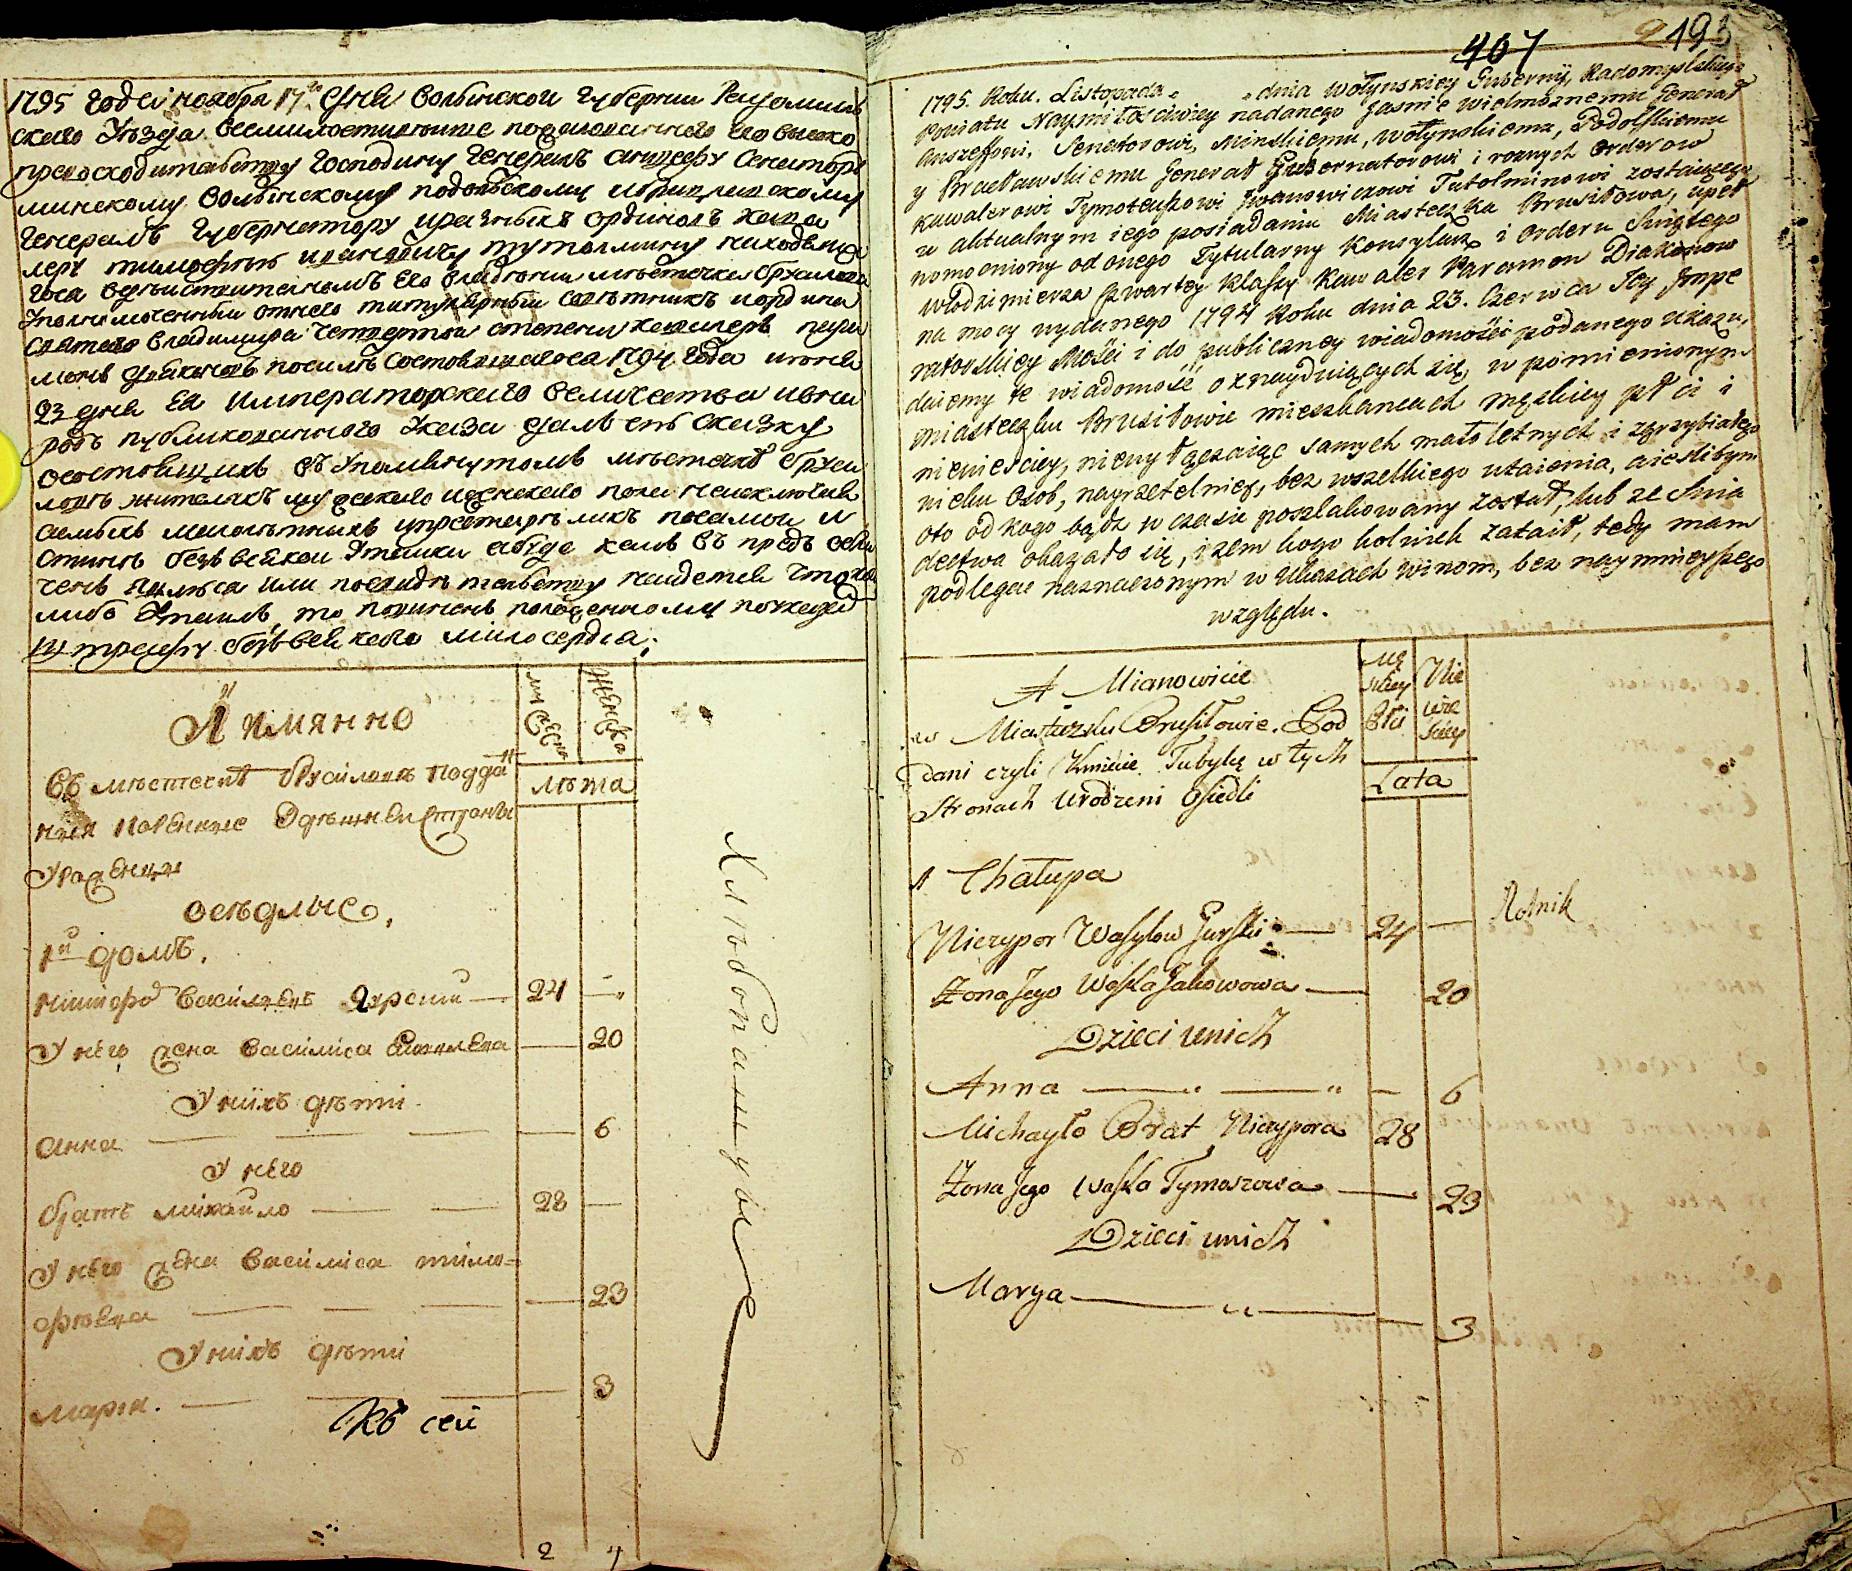 1795 года ноября 17го дня Волынской губернии Радомысль
скаго уѣзда всемилостивейше пожалованнаго его высоко
превосходительству господину генералъ аншефу сенатору
минскому волынскому подольскому и брацлавскому
генералъ губернатору и разныхъ ординовъ кава
леру тимофею ивановичу тутолмину находяща
гося вдѣйствительномъ его владѣнии мѣстечка брусилова
уполномоченный отнего титулярный совѣтникъ и ордина
святаго владимира четвертой степени кавалеръ пара
монъ дьяконовъ по силѣ состоявшагося 1794 года июня
23 дня Ея императорскаго величества и въна
родъ публикованнаго указа даю сию сказку
о состоящихъ въ упомянутомъ мѣстечкѣ бруси
ловѣ жителяхъ мужескаго и женскаго пола неисключая
самыхъ малолѣтнихъ и престарѣлыхъ по самой и
стинѣ безъ всякой утайки а буде кемъ въ предъ обли
ченъ явлюся или по свидѣтельству найдется что кого
либо утаилъ, то повиненъ положенному по указамъ
штрафу безъ всякаго милосердия.
А имянно
мужеска
женска
Въ мѣстечкѣ Брусиловѣ подда
ныя
здешней страны
уроженцы
лѣта
оседлые,
1й домъ.
никифоръ васильевъ гурский — 24 —
У него жена василиса яковлева — 20
У нихъ дѣти
анна — — — — 6
У него
братъ михайло — — 28 —
У него жена василиса тимо=
фѣева — — — — 23
У нихъ дѣти
Мария. — — — — 3
Къ сей
2 4
Хлѣбопашцы
407
2193
1795. Roku. Listopada „ „ dnia Wołynskiey Guberniÿ, Radomyslskiego
Powiatu Naymiłosciwiey nadanego Jasnie Wielmoznemu Generał
Anszeffowi, Senatorowi, Minskiemu, Wołynskiemu, Podolskiemu
y Bracławskiemu Generał Gubernatorowi i roznych Orderow
Kawalerowi Tymoteuszowi Iwanowiczowi Tutolminowi zostaiącego
w aktualnym iego posiadaniu Miasteczka Brusiłowa, upeł
nomocniony od onego Tytularny Konsyliarz i Orderu Swiętego
Włodzimierza Czwartey Klassy Kawaler Paramon Diakonow
na mocy wydanego 1794 Roku dnia 23. Czerwca Jey Impe
ratorskiey Mości i do publiczney wiadomości podanego Ukazu,
daiemy tę wiadomość o znayduiących się, w pomienionym
Miasteczku Brusiłowie mieszkancach męskiey płci i
niewiesciey, niewyłączaiąc samych małoletnych i zgrzybiałego
wieku Osob, nayrzetelniey, bez wszelkiego utaienia, a iesliby m
oto od kogo bądź w czasie poszlakowany został, lub ze Swia
dectwa okazało się, iżem kogo kolwiek zataił, tedy mam
podlegać naznaczonym w Ukazach winom, bez naymnieyszego
względu.
A Mianowicie
Mę
skiey
Płci
Nie
wie
sciey
w Miasteczku Brusiłowie. Pod
dani czyli Kmiecie Tubylcę w tych
Stronach Urodzeni Osiedli
Lata
1 Chałupa
Niczypor Wasylow Gurski — 24 — Rolnik
Zona Jego Waska Jakowowa — 20
Dzieci unich
Anna — „ — „ — 6
Michayło Brat Niczypora 28
Zona Jego Waska Tymoszowa — 23
Dzieci unich
Marya — „ — — 3